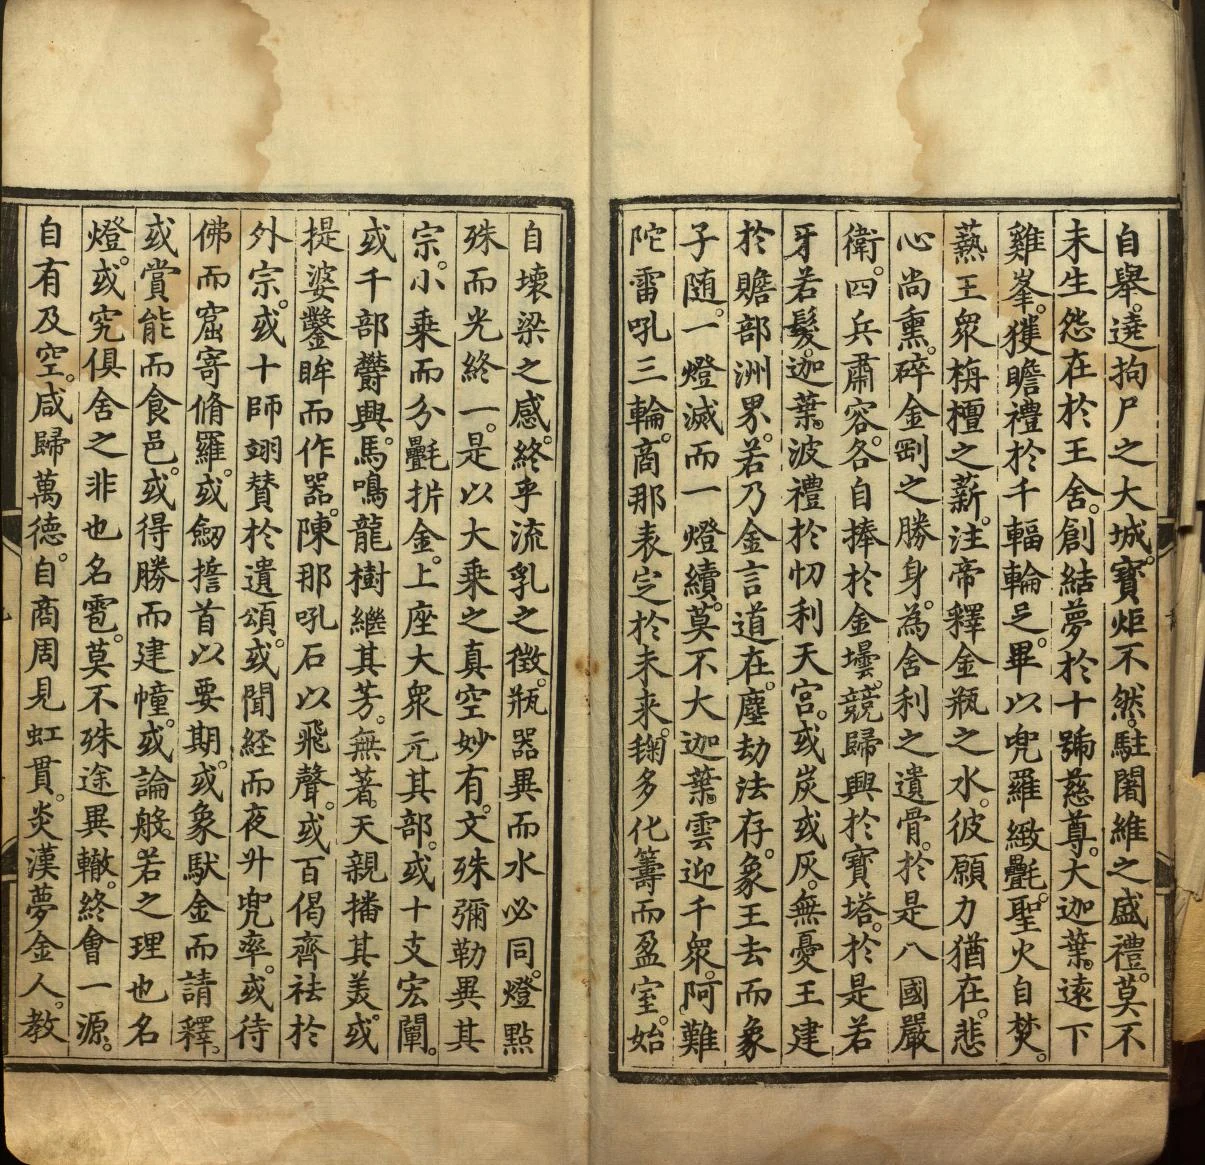 自舉。遶拘尸之大城。寶炬不然。駐闍維之盛禮。莫不
未生怨在於王舍。創結夢於十號慈尊。大迦葉。遠下
雞峯。獲瞻禮於千輻輪𠯁。畢以兜羅緻㲲。聖火自焚。
爇王衆栴檀之薪。注帝釋金瓶之水。彼願力猶在。悲
心尚熏。碎金剛之勝身。為舍利之遺骨。於是八國嚴
衛。四兵肅容。各自捧於金壜。競歸興於寶塔。於是若
牙若髮。迦葉。波禮於忉利天宮。或炭或灰。無憂王建
於贍部洲界。若乃金言道在。塵劫法存。象王去而象
子随。一燈滅而一燈續。莫不大迦葉。雲迎千衆。阿難
陀雷吼三輪。商那表㝎於未来。毱多化籌而盈室。始
自壞梁之感。終乎流乳之徵。瓶器異而水必同。燈點
殊而光終一。是以大乘之真空妙有。文殊彌勒異其
宗。小乘而分㲲㧁金。上座大衆元其部。或十支宏闡。
或千部欝興。馬鳴龍樹繼其芳。無著。天親播其美。或
提婆鑿眸而作器。陳那吼石以飛聲。或百偈齊祛於
外宗。或十師翊賛於遺頌。或聞経而夜升兜率。或待
佛而窟寄脩羅。或劒擔首以要期。或象馱金而請釋。
或賞能而食邑。或得勝而建幢。或論般若之理也名
燈。或究俱舍之非也名雹。莫不殊途異轍。終會一源。
自有及空。咸歸萬德。自商周見虹貫。炎漢夢金人。教